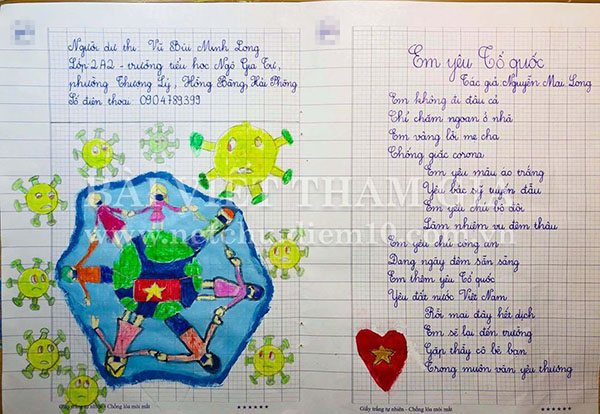 Người dự thi: Vũ Bùi Minh Long
Lớp: 2A2 - trường tiểu học Ngô Gia Tự,
phường Thượng Lý, Hồng Bàng, Hải Phòng
Số điện thoại: 0904789399
Em yêu Tổ quốc
Tác giả Nguyễn Mai Long
Em không đi đâu cả
Chỉ chăm ngoan ở nhà
Em vâng lời mẹ cha
Chống giặc corona
Em yêu màu áo trắng
Yêu bác sỹ tuyến đầu
Em yêu chú bộ đội
Làm nhiệm vụ đêm thâu
Em yêu chú công an
Đang ngày đêm sẵn sàng
Em thêm yêu Tổ quốc
Yêu đất nước Việt Nam
Rồi mai đây hết dịch
Em sẽ lại đến trường
Gặp thầy cô bè bạn
Trong muôn vàn yêu thương
BÀI VIẾT THAM GIA
www.netchudiem10.com.vn
Giấy trắng tự nhiên - Chống lóa mỏi mắt
Giấy trắng tự nhiên - Chống lóa mỏi mắt